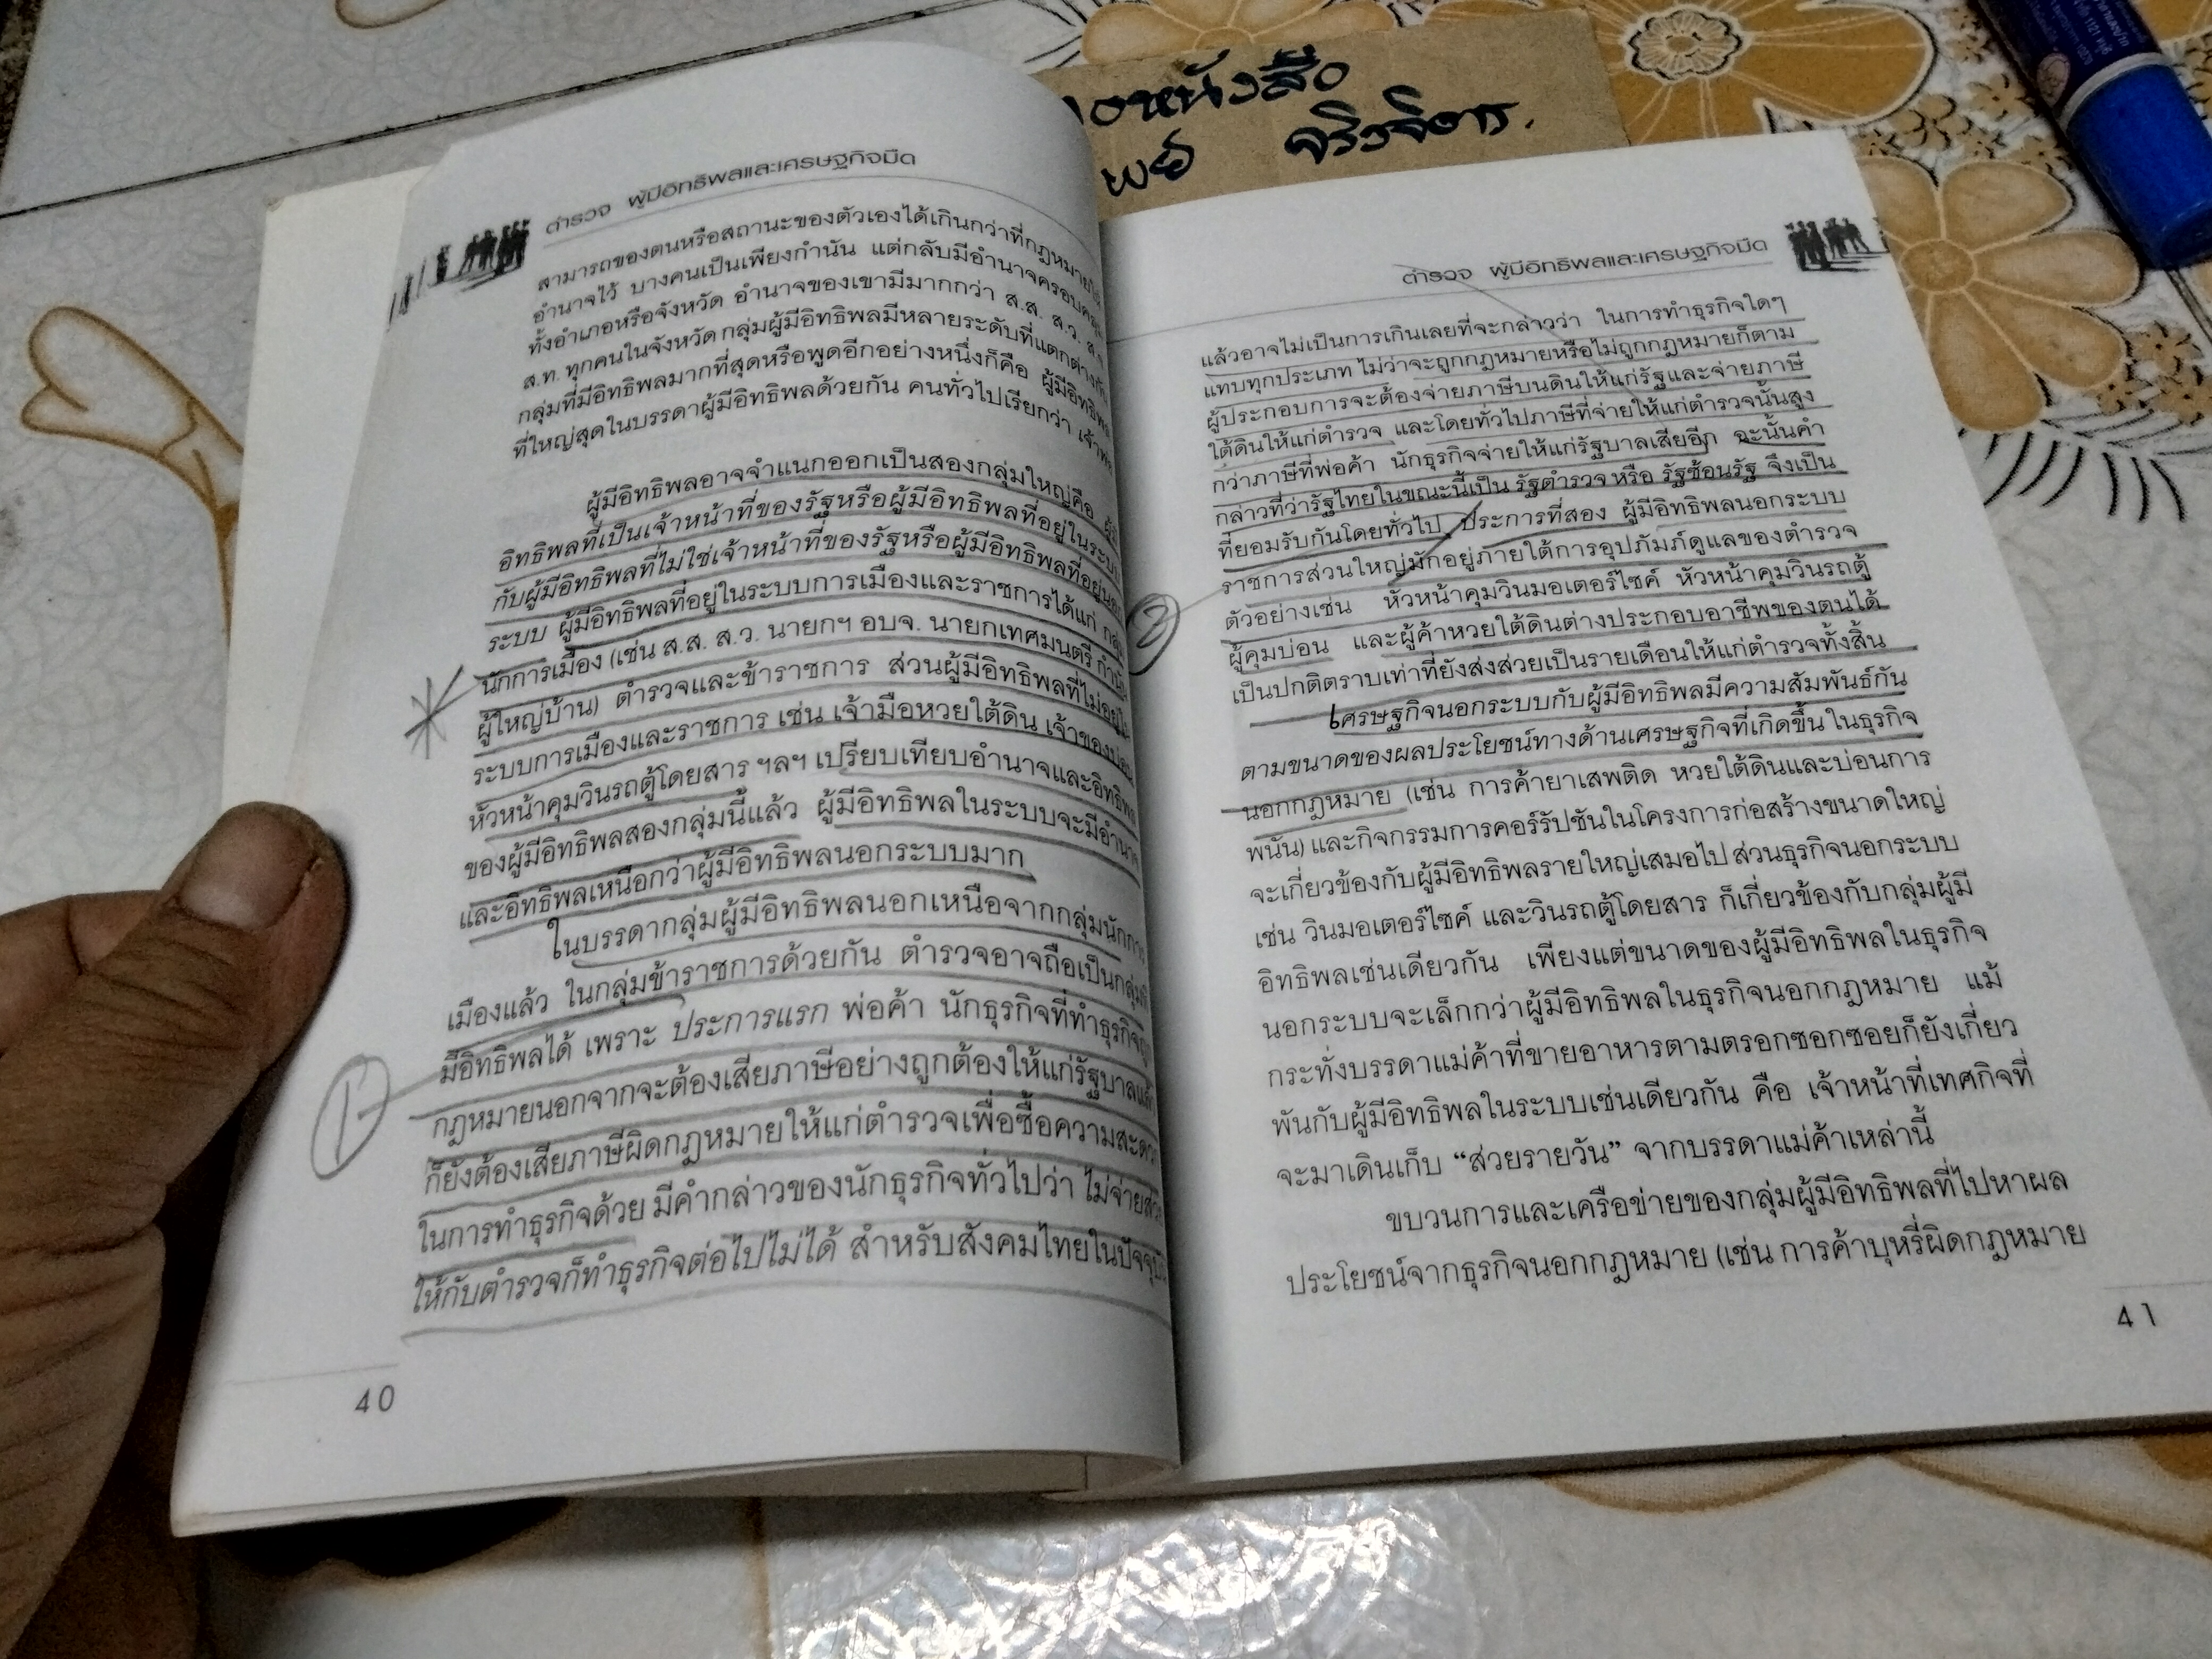 องหนังสือ
พย จริงจิตร.
ตำรวจ ผู้มีอิทธิพลและเศรษฐกิจมืด
สามารถของตนหรือสถานะของตัวเองได้เกินกว่าที่กฎหมายให้
อำนาจไว้ บางคนเป็นเพียงกำนัน แต่กลับมีอำนาจครอบคลุม
ทั้งอำเภอหรือจังหวัด อำนาจของเขามีมากกว่า ส.ส. ส.ว. ส.จ.
ส.ท. ทุกคนในจังหวัด กลุ่มผู้มีอิทธิพลมีหลายระดับที่แตกต่างกัน
กลุ่มที่มีอิทธิพลมากที่สุดหรือพูดอีกอย่างหนึ่งก็คือ ผู้มีอิทธิพล
ที่ใหญ่สุดในบรรดาผู้มีอิทธิพลด้วยกัน คนทั่วไปเรียกว่า เจ้าพ่อ
ผู้มีอิทธิพลอาจจำแนกออกเป็นสองกลุ่มใหญ่คือ ผู้มี
อิทธิพลที่เป็นเจ้าหน้าที่ของรัฐหรือผู้มีอิทธิพลที่อยู่ในระบบ
กับผู้มีอิทธิพลที่ไม่ใช่เจ้าหน้าที่ของรัฐหรือผู้มีอิทธิพลที่อยู่นอก
ระบบ ผู้มีอิทธิพลที่อยู่ในระบบการเมืองและราชการได้แก่ กลุ่ม
นักการเมือง (เช่น ส.ส. ส.ว. นายกฯ อบจ. นายกเทศมนตรี กำนัน
ผู้ใหญ่บ้าน) ตำรวจและข้าราชการ ส่วนผู้มีอิทธิพลที่ไม่อยู่ใน
ระบบการเมืองและราชการ เช่น เจ้ามือหวยใต้ดิน เจ้าของบ่อน
หัวหน้าคุมวินรถตู้โดยสาร ฯลฯ เปรียบเทียบอำนาจและอิทธิพล
ของผู้มีอิทธิพลสองกลุ่มนี้แล้ว ผู้มีอิทธิพลในระบบจะมีอำนาจ
และอิทธิพลเหนือกว่าผู้มีอิทธิพลนอกระบบมาก
ในบรรดากลุ่มผู้มีอิทธิพลนอกเหนือจากกลุ่มนักการ
เมืองแล้ว ในกลุ่มข้าราชการด้วยกัน ตำรวจอาจถือเป็นกลุ่มที่
1 มีอิทธิพลได้ เพราะ ประการแรก พ่อค้า นักธุรกิจที่ทำธุรกิจถูก
กฎหมายนอกจากจะต้องเสียภาษีอย่างถูกต้องให้แก่รัฐบาลแล้ว
ก็ยังต้องเสียภาษีผิดกฎหมายให้แก่ตำรวจเพื่อซื้อความสะดวก
ในการทำธุรกิจด้วย มีคำกล่าวของนักธุรกิจทั่วไปว่า ไม่จ่ายส่วย
ให้กับตำรวจก็ทำธุรกิจต่อไปไม่ได้ สำหรับสังคมไทยในปัจจุบัน
40
ตำรวจ ผู้มีอิทธิพลและเศรษฐกิจมืด
แล้วอาจไม่เป็นการเกินเลยที่จะกล่าวว่า ในการทำธุรกิจใดๆ
แทบทุกประเภท ไม่ว่าจะถูกกฎหมายหรือไม่ถูกกฎหมายก็ตาม
ผู้ประกอบการจะต้องจ่ายภาษีบนดินให้แก่รัฐและจ่ายภาษี
ใต้ดินให้แก่ตำรวจ และโดยทั่วไปภาษีที่จ่ายให้แก่ตำรวจนั้นสูง
กว่าภาษีที่พ่อค้า นักธุรกิจจ่ายให้แก่รัฐบาลเสียอีก ฉะนั้นคำ
กล่าวที่ว่ารัฐไทยในขณะนี้เป็น รัฐตำรวจ หรือ รัฐซ้อนรัฐ จึงเป็น
ที่ยอมรับกันโดยทั่วไป ประการที่สอง ผู้มีอิทธิพลนอกระบบ
2 ราชการส่วนใหญ่มักอยู่ภายใต้การอุปภัมภ์ดูแลของตำรวจ
ตัวอย่างเช่น หัวหน้าคุมวินมอเตอร์ไซค์ หัวหน้าคุมวินรถตู้
ผู้คุมบ่อน และผู้ค้าหวยใต้ดินต่างประกอบอาชีพของตนได้
เป็นปกติตราบเท่าที่ยังส่งส่วยเป็นรายเดือนให้แก่ตำรวจทั้งสิ้น
เศรษฐกิจนอกระบบกับผู้มีอิทธิพลมีความสัมพันธ์กัน
ตามขนาดของผลประโยชน์ทางด้านเศรษฐกิจที่เกิดขึ้น ในธุรกิจ
นอกกฎหมาย (เช่น การค้ายาเสพติด หวยใต้ดินและบ่อนการ
พนัน) และกิจกรรมการคอร์รัปชันในโครงการก่อสร้างขนาดใหญ่
จะเกี่ยวข้องกับผู้มีอิทธิพลรายใหญ่เสมอไป ส่วนธุรกิจนอกระบบ
เช่น วินมอเตอร์ไซค์ และวินรถตู้โดยสาร ก็เกี่ยวข้องกับกลุ่มผู้มี
อิทธิพลเช่นเดียวกัน เพียงแต่ขนาดของผู้มีอิทธิพลในธุรกิจ
นอกระบบจะเล็กกว่าผู้มีอิทธิพลในธุรกิจนอกกฎหมาย แม้
กระทั่งบรรดาแม่ค้าที่ขายอาหารตามตรอกซอกซอยก็ยังเกี่ยว
พันกับผู้มีอิทธิพลในระบบเช่นเดียวกัน คือ เจ้าหน้าที่เทศกิจที่
จะมาเดินเก็บ “ส่วยรายวัน” จากบรรดาแม่ค้าเหล่านี้
ขบวนการและเครือข่ายของกลุ่มผู้มีอิทธิพลที่ไปหาผล
ประโยชน์จากธุรกิจนอกกฎหมาย (เช่น การค้าบุหรี่ผิดกฎหมาย
41